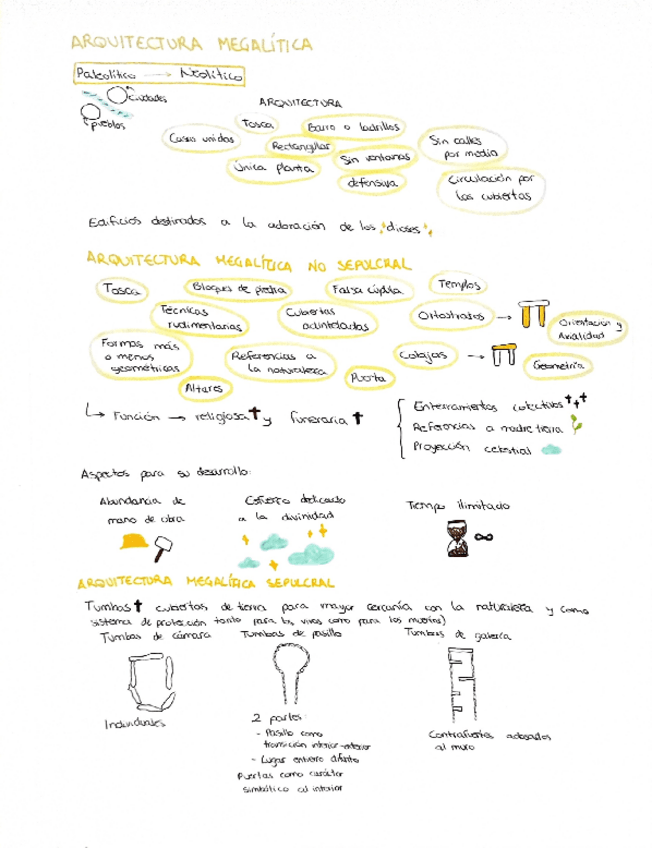 ARQUITECTURA MEGALÍTICA
Paleolítico → Neolítico
ciudades
pueblos
ARQUITECTURA
Casas unidas
Tosca
Barro o ladrillos
Rectangular
Única planta
Sin ventanas
defensiva
Sin calles
por medio
Circulación por
las cubiertas
Edificios destinados a la adoración de los dioses
ARQUITECTURA MEGALÍTICA NO SEPULCRAL
Tosca
Bloques de piedra
Falsa cúpula
Templos
Técnicas
rudimentarias
Cubiertas
adinteladas
Ortostratos →
Orientación y
Axialidad
Formas más
o menos
geométricas
Referencias a
la naturaleza
Cobajas →
Geometría
Altares
Puerta
↳ Función → religiosa y funeraria
Enterramientos colectivos
Referencias a madre tierra
Proyección celestial
Aspectos para su desarrollo:
Abundancia de
mano de obra
Esfuerzo dedicado
a la divinidad
Tiempo ilimitado
∞
ARQUITECTURA MEGALÍTICA SEPULCRAL
Tumbas cubiertas de tierra para mayor cercanía con la naturaleza y como
sistema de protección tanto para los vivos como para los muertos)
Tumbas de cámara
Tumbas de pasillo
Tumbas de galería
Individuales
2 partes:
- Pasillo como
transición interior-exterior
- Lugar entierro difunto
Puertas como carácter
simbólico al interior
Contrafuertes adosados
al muro